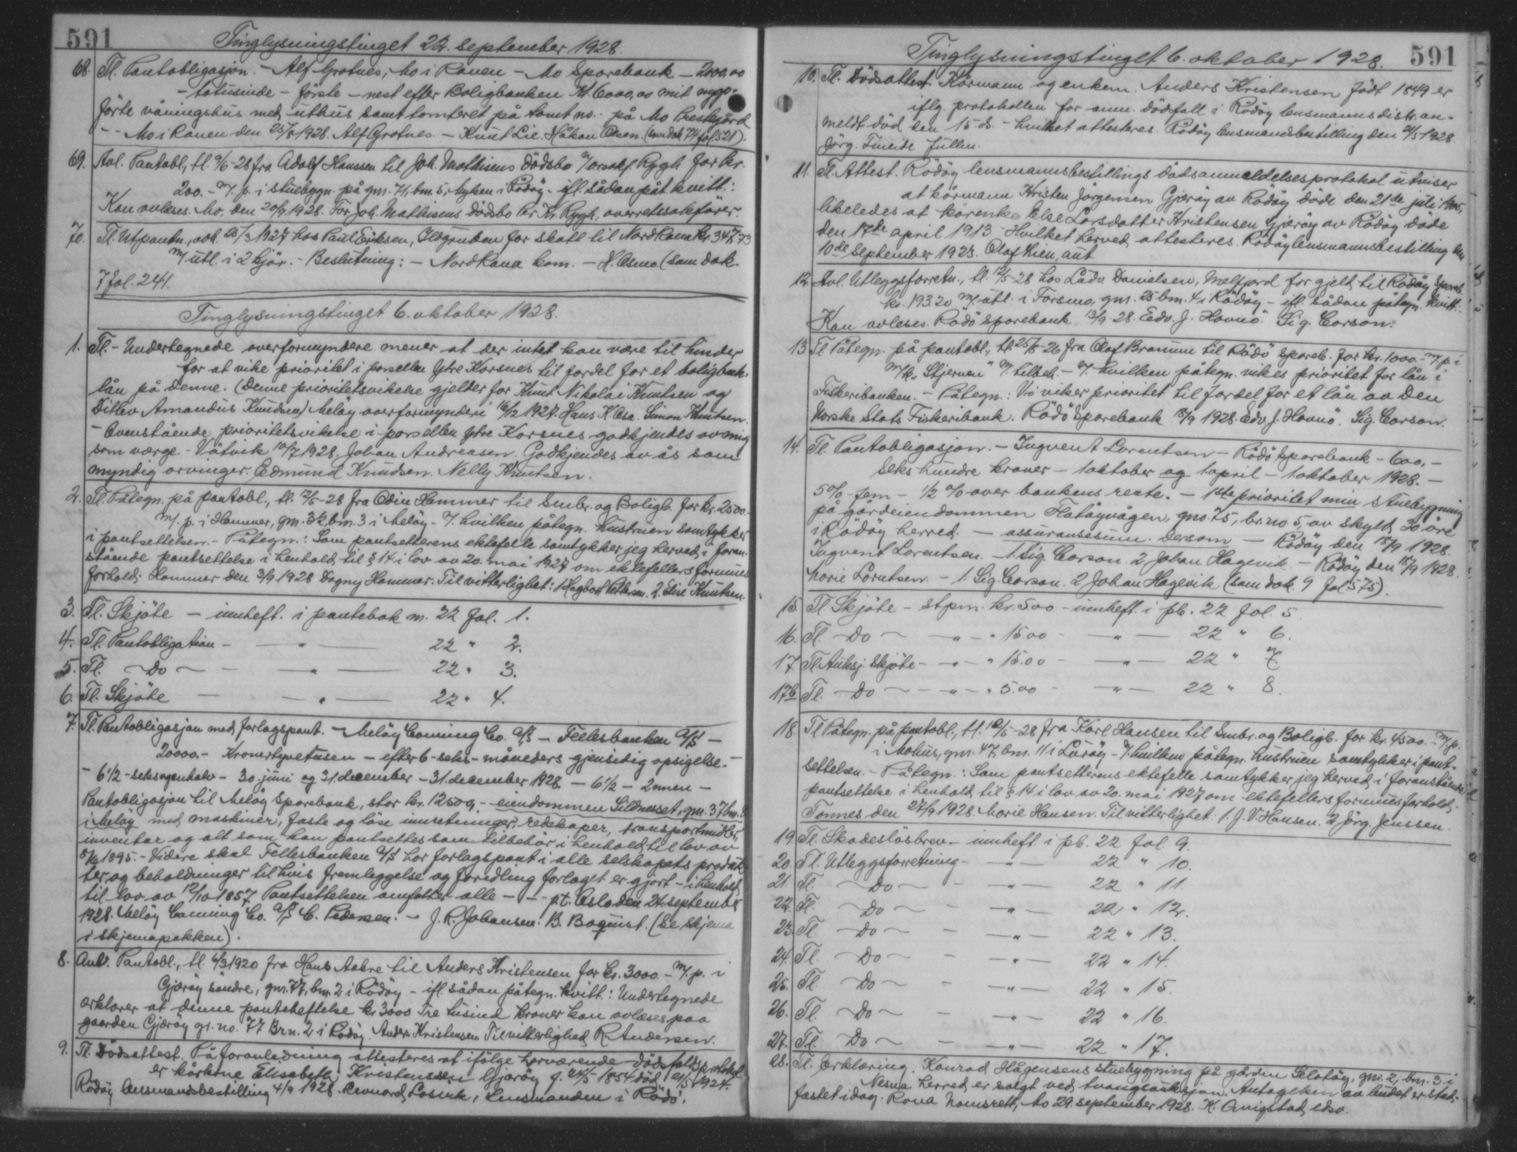 591
Tinglysningstinget 22. september 1928.
68. Tl. Pantobligasjon. - Alf Grotnes, Mo i Ranen - Mo Sparebank - 2000,00
- totusinde - første - nest efter Boligbanken kr. 6000,00 mit nyop-
førte våningshus med uthus samt tomteret på tomt no. på Mo
Mo i Ranen den 1928. Alf Grotnes. - Knut Lie. Håkon Olsen. (Sam dok. 74 fol. 521).
69. Avl. Pantobl., tl. 28 fra Adolf Hanssen til Joh. Mathisens dødsbo Rygh for kr.
200.- m. p. i stuebygn. på gnr. 71, bnr. 5, Myken i Rødøy - ifl. sådan påt. kvitt.:
Kan avleses. Mo, den 20/9 1928. For Joh. Mathisens dødsbo Kr. Rygh, overretssakfører.
70. Tl. Utpantn., avh. 1927 hos Paul Eriksen, for skatt til Nord Rana kr. 347,73
m/ utl. i 2 kjør. - Beslutning: - Nord Rana kom. - (Sam dok.
7 fol. 241.
Tinglysningstinget 6. oktober 1928.
1. Tl. - Undertegnede overformyndere mener at der intet kan være til hinder
for at vike prioritet i porsellen Ytre Korsnes til fordel for et boligbank-
lån på denne. (Denne prioritetsvikelse gjelder for Knut Nikolai Knutsen og
Ditlev Amandus Knudsen) Meløy overformynderi 1927. Hans Simon Knutsen.
- Ovenstående prioritetsvikelse i porsellen Ytre Korsnes godkjendes av mig
som verge. - 1928. Johan Andreasen. Godkjendes av os som
myndig arvinger. Edmund Knudsen. Nelly Knutsen.
2. Tl. Påtegn. på pantobl., tl. 28 fra Odin Hammer til Småbr. og Boligb. for kr. 2500.-
m. p. i Hammer, gnr. 32, bnr. 3 i Meløy - hvilken påtegn. hustruen samtykker
i pantsettelsen. - Påtegn.: Som pantsetterens ektefelle samtykker jeg herved i foran-
stående pantsettelse i henhold til § 14 i lov av 20. mai 1927 om ektefellers formues-
forhold. Hammer den 3/9 1928 Dagny Hammer. Til vitterlighet: 1. Hagbart 2. Knutsen
3. Tl. Skjøte - innheft. i pantebok nr. 22 fol. 1.
4. Tl. Pantobligation - " 22 " 2.
5. Tl. - Do - - " 22 " 3.
6. Tl. Skjøte - " 22 " 4.
7. Tl. Pantobligasjon med forlagspant. - Meløy Canning Co. A/S - Fellesbanken A/S -
20000.- Kroner tyvetusen - efter 6 - seks - måneders gjensidig opsigelse. -
- 6 1/2 - seks og en halv - 30. juni og 31. december - 31. december 1928 - 6 1/2 -
Pantobligasjon til Meløy Sparebank, stor kr. 12500,- eiendommen Sildneset, gnr. 37 bnr. 8
i Meløy med maskiner, faste og løse innretninger, redskaper, transportmidler,
inventar og alt som kan pantsettes som tilbehør i henhold til lov av
8/6 1895. - Videre skal Fellesbanken A/S ha forlagspant i alle selskapets produk-
ter og beholdninger til hvis fremleggelse og foredling forlaget er gjort - i henhold
til lov av 12/10 1857. Pantsettelsen omfatter alle - - p.t. Oslo den 24. september
1928. Meløy Canning Co. A/S C. Petersen. - J. R. Johansen. B. Boquist. (Se skjema
i skjemapakken).
8. Avl. Pantobl., tl. 1920 fra Hans Aakre til Anders Kristensen for kr. 3000.- m. p. i
Gjerøy søndre, gnr. 77, bnr. 2 i Rødøy - ifl. sådan påtegn. kvitt.: Undertegnede
erklærer at denne pantsheftelse kr. 3000 Tre tusind kroner kan avlæses paa
gaarden Gjerøy gr. no. 77 Br. n. 2 i Rødøy. Anders Kristensen Til vitterlighed R. Andersen.
9. Tl. Dødsattest. På foranledning attesteres at ifølge herværende dødsfaldsprotokol
er kårkone Elisabeth Kristenssen Gjerøy f. 1854 død 1924.
Rødøy lensmandsbestilling 4/9 1928. Leonard Losvik, lensmanden i Rødø.
Tinglysningstinget 6. oktober 1928. 591
10. Tl. Dødsattest. Kårmann og enkem. Anders Kristensen født 1849 er
iflg. protokollen for anm. dødsfall i Rødøy lensmannsdistr. an-
meldt død den 15 ds. - hvilket attesteres. Rødøy lensmansbestilling den 1928.
Jørg. fullm.
11. Tl. Attest. Rødøy lensmannsbestillings dødsanmeldelsesprotokol utviser
at kårmann Kristen Jörgensen Gjerøy av Rødøy døde den 21de juli
likeledes at kårenke Else Larsdatter Kristensen Gjerøy av Rødøy døde
den 17de april 1913. Hvilket herved attesteres. Rødøy lensmannsbestilling den
10de september 1923. Olaf aut.
12. Avl. Utleggsforretn., tl. 28 hos Låda Danielsen, Melfjord for gjeld til Rødøy spareb.
kr. 193.20 m. utl. i Forsmo, gnr. 25 bnr. 4 i Rødøy - ifl. sådan påtegn. kvitt.:
Kan avleses. Rødø Sparebank 28. Edv. J. Hovnø. Sig. Corson.
13. Tl. Påtegn. på pantobl., tl. 26 fra Olaf Braseen til Rødø spareb. for kr. 1000.- m. p. i
"Stjernen" m/ tilbeh. - hvilken påtegn. vikes prioritet for lån i
Fiskeribanken. - Påtegn.: Vi viker prioritet til fordel for et lån av Den
Norske Stats Fiskeribank. Rødø Sparebank 1928 Edv. J. Hovnø. Sig. Corson.
14. Tl. Pantobligasjon. - Ingvart Lorentsen - Rødø Sparebank - 600,-
Seks hundre kroner - 1 oktober og 1 april - 1 oktober 1928. -
5 % - fem - 1/2 % over bankens rente. - 1ste prioritet min stuebygning
på gårdeiendommen Hatøyvågen, gno 75, br. no 5, av skyld 30 øre
i Rødøy herred. - assuransesum. Dersom - Rødøy den 1928.
Ingvart Lorentsen - 1 Sig. Corson 2 Johan Hagevik. - Rødøy den 1928.
Marie Lorentsen. - 1. Sig. Corson. 2 Johan Hagevik (Sam dok. 9 fol. 575).
15. Tl. Skjøte - stpm. kr. 5.00 - innheft. i pb. 22 fol. 5.
16. Tl. - Do - - " - " 15.00 - " - 22 " 6.
17 Tl. Auksj. skjøte - - " - " 15.00 - " - 22 " 7.
17b Tl. - Do - - " - " 5.00 - " - 22 " 8.
18. Tl. Påtegn. på pantobl., tl. 28 fra Karl Hansen til Småbr. og Boligb. for kr. 4500.- m. p.
i gnr. 47, bnr. 11 i Lurøy - hvilken påtegn. hustruen samtykker i pant-
settelsen. - Påtegn.: Som pantsetterens ektefelle samtykker jeg herved i foranstående
pantsettelse i henhold til § 14 i lov av 20. mai 1927 om ektefellers formuesforhold.
Tonnes den 1928 Marie Hansen. Til vitterlighet: 1. J. V. Hansen. 2 Jörg. Jenssen.
19. Tl. Skadesløsbrev - innheft i pb. 22 fol 9.
20. Tl. Utleggsforretning - " - 22 " 10.
21. Tl. - Do - - " - 22 " 11.
22. Tl. - Do - - " - 22 " 12.
23. Tl. - Do - - " - 22 " 13.
24. Tl. - Do - - " - 22 " 14.
25. Tl. - Do - - " - 22 " 15.
26. Tl. - Do - - " - 22 " 16.
27. Tl. - Do - - " - 22 " 17.
28. Tl. Erklæring. Konrad Hågensens stuebygning på gården gnr. 2, bnr. 3 i
Nesna herred er solgt ved tvangsauksjon. Antagelsen av budet er stad-
festet idag. Rana Namsrett, Mo 29. september 1928. K.